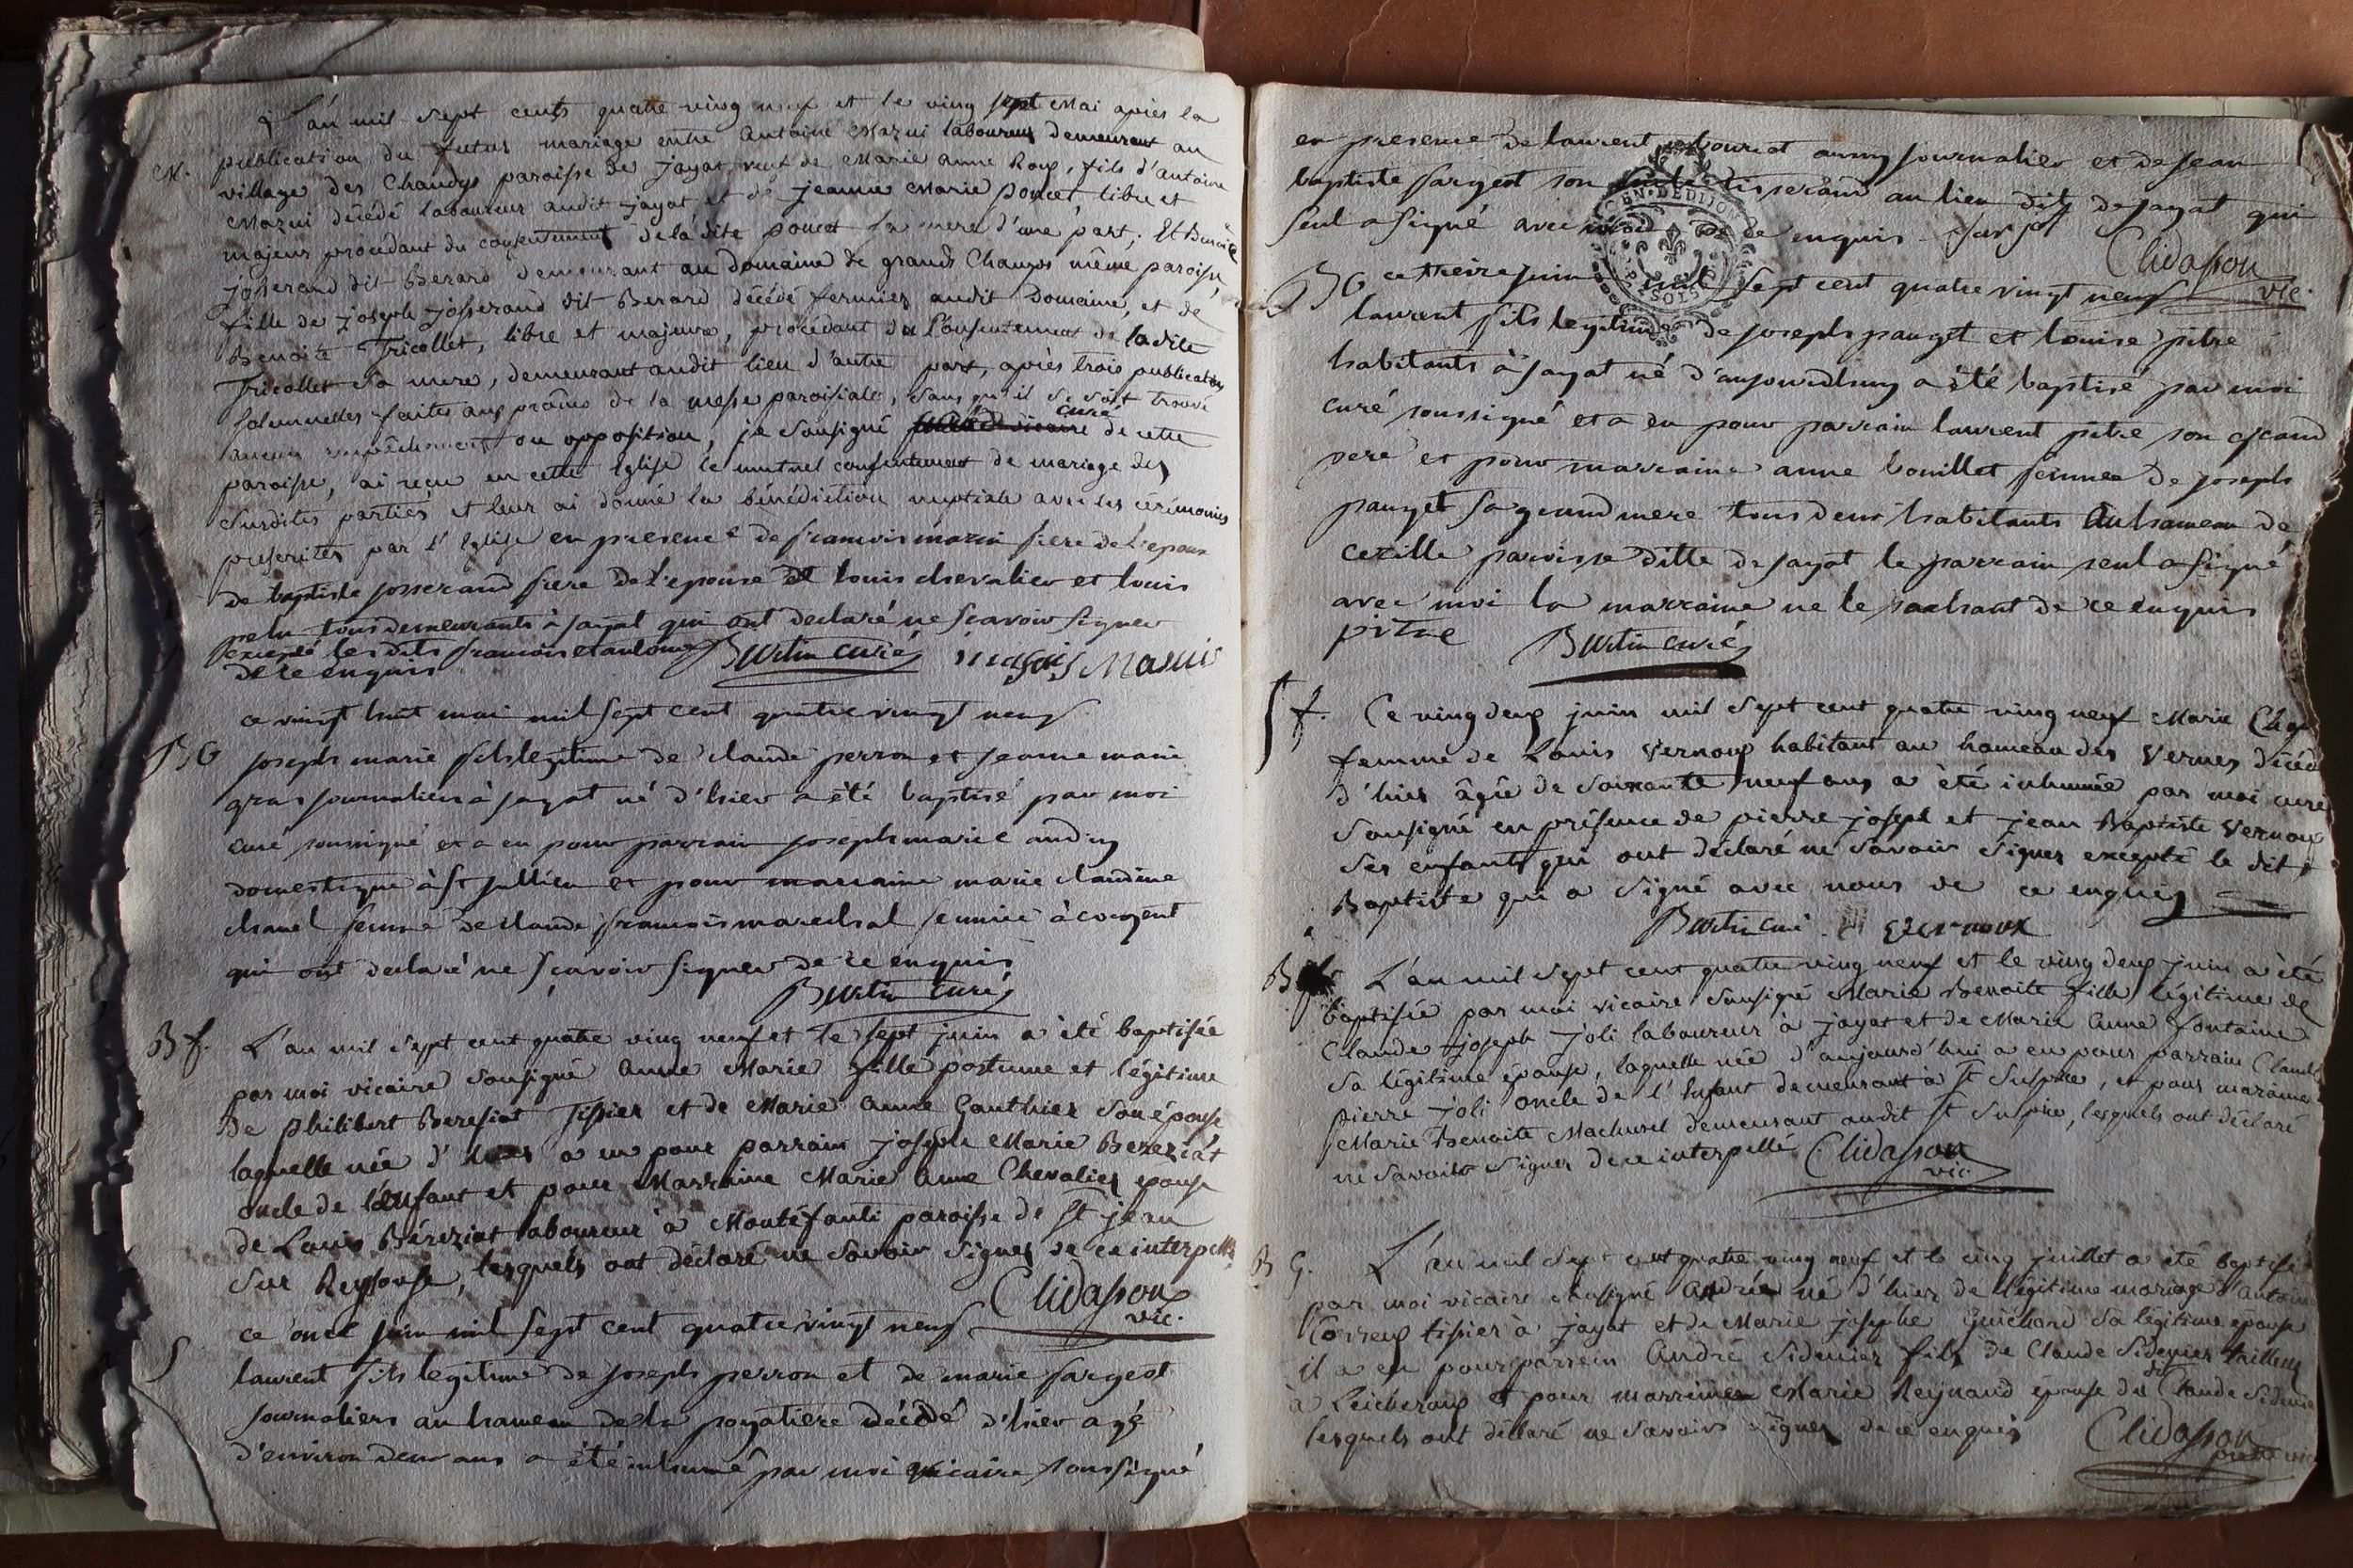 L'an mil sept cents quatre ving neuf et le ving sept Mai après la
M. publication du futur mariage entre Antoine Mazui laboureur demeurant au
village des Chaudys paroisse de jayat veuf de Marie Anne Roux, fils d'antoine
Mazui décédé laboureur audit jayat et de jeanne Marie poncet libre et
majeur procedant du consentement de la dite poncet sa mere d'une part; Et Benoite
josserand dit Berard demeurant au Domaine de grands Champs même paroisse,
fille de joseph josserand dit Berard décédé fermier audit Domaine, et de
Benoite Tricollet, libre et majeure, procédant du consentement de la dite
Tricollet sa mere, demeurant audit lieu d'autre part, après trois publications
solemnelles faites aux prônes de la messe paroisiale, sans qu'il se soit trouvé
aucun empêchement ou opposition, je sousigné curé de cette
paroisse, ai reçu en cette Eglise le mutuel consentement de mariage des
susdites parties et leur ai donné la bénédiction nuptiale avec les cérémonies
prescrites par l'Eglise en presence de francois mazui frere de l'epoux
de baptiste josserand frere de l'epouse et louis chevalier et louis
pelu tous demeurants à jayat qui ont declaré ne scavoir signer
excepté les dits francois et antoine
de ce enquis Burtin curé Mazui
ce vingt huit mai mil sept cent quatre vingt neuf
BG joseph marie fils legitime de claude perron et jeanne marie
gras journaliers à jayat né d'hier a été baptisé par moi
curé soussigné et a eu pour parrain joseph marie audin
domestique à st jullien et pour marraine marie claudine
chanel femme de claude francois marechal fermier à cormoz
qui ont declaré ne sçavoir signer de ce enquis
Burtin curé
B f. L'an mil sept cent quatre ving neuf et le sept juin a été baptisée
par moi vicaire sousigné Anne Marie fille postume et légitime
de philibert Beresiat Tissier et de Marie Anne Gauthier son épouse
laquelle née d'hier a eu pour parrain joseph Marie Bereziat
oncle de l'enfant et pour Marraine Marie Anne Chevalier epouse
de Louis Béreziat laboureur à Montéfanti paroisse de St jean
sur Reyssouse, lesquels ont déclaré ne savoir signer de ce interpellés
Clidasson
vic.
ce onze juin mil sept cent quatre vingt neuf
S laurent fils legitime de joseph perron et de marie sargeot
journaliers au hameau de la poyatiere décédé d'hier agé
d'environ deux ans a été inhumé par moi vicaire soussigné
en presence de laurent bouvet aussy journalier et de jean
baptiste sargeot son tisserand au lieu dit de jayat qui
seul a signé avec moi de ce enquis sarjot
Clidasson
vic.
BG ce treize juin mil sept cent quatre vingt neuf
laurent fils legitime de joseph pauget et louise pitre
habitants à jayat né d'aujourdhuy a été baptisé par moi
curé soussigné et a eu pour parrain laurent pitre son grand
pere et pour marraine anne bouillet femme de joseph
pauget sa grand mere tous deux habitants du hameau de
cezille paroisse ditte de jayat le parrain seul a signé
avec moi la marraine ne le sachant de ce enquis
pitre Burtin curé
S f. Ce ving deux juin mil sept cent quatre ving neuf Marie
femme de Louis Vernoux habitant au hameau des Vernes décédée
d'hier âgée de soixante neuf ans a été inhumée par moi curé
sousigné en présence de pierre joseph et jean Baptiste Vernoux
ses enfants qui ont déclaré ne savoir signer excepté le dit
Baptiste qui a signé avec nous de ce enquis
Burtin curé Vernoux
B L'an mil sept cent quatre ving neuf et le ving deux juin a été
baptisée par moi vicaire sousigné Marie Benoite fille légitime de
Claude joseph joli laboureur à jayat et de Marie Anne fontaine
sa légitime épouse, laquelle née d'aujourd'hui a eu pour parrain Claude
pierre joli oncle de l'enfant demeurant à St Sulpice, et pour maraine
Marie Benoite Machurel demeurant audit St Sulpice, lesquels ont déclaré
ne savoir signer de ce interpellé Clidasson
vic.
B G. L'an mil sept cent quatre ving neuf et le cinq juillet a été baptisé
par moi vicaire sousigné André né d'hier de légitime mariage d'antoine
Correup tissier à jayat et de Marie josephe Guichard sa légitime épouse
il a eu pour parrein André Sidenier fils de Claude Sidenier tailleur
à Leicheroux et pour marreine Marie Reynaud épouse du dit Claude Sidenier
lesquels ont déclaré ne savoir signer de ce enquis Clidasson